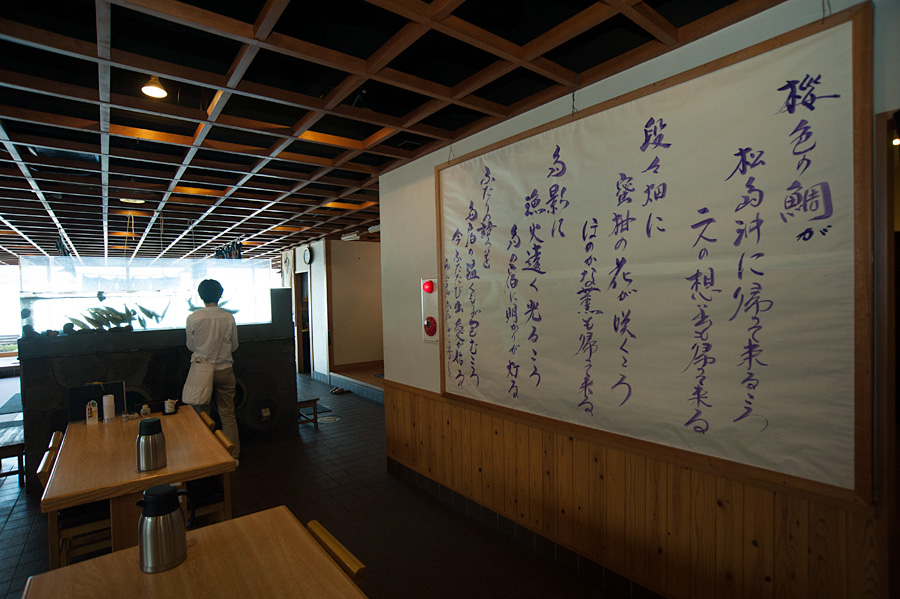 桜色の鯛が
松島沖に帰って来るころ
二人の想い出も帰って来る
段々畑に
蜜柑の花が咲くころ
ほのかな薫も帰って来る
島影に
漁火遠く光るころ
島宿に明かりが灯る
ふたり
島宿の温くもりが包むころ
今ふたたび